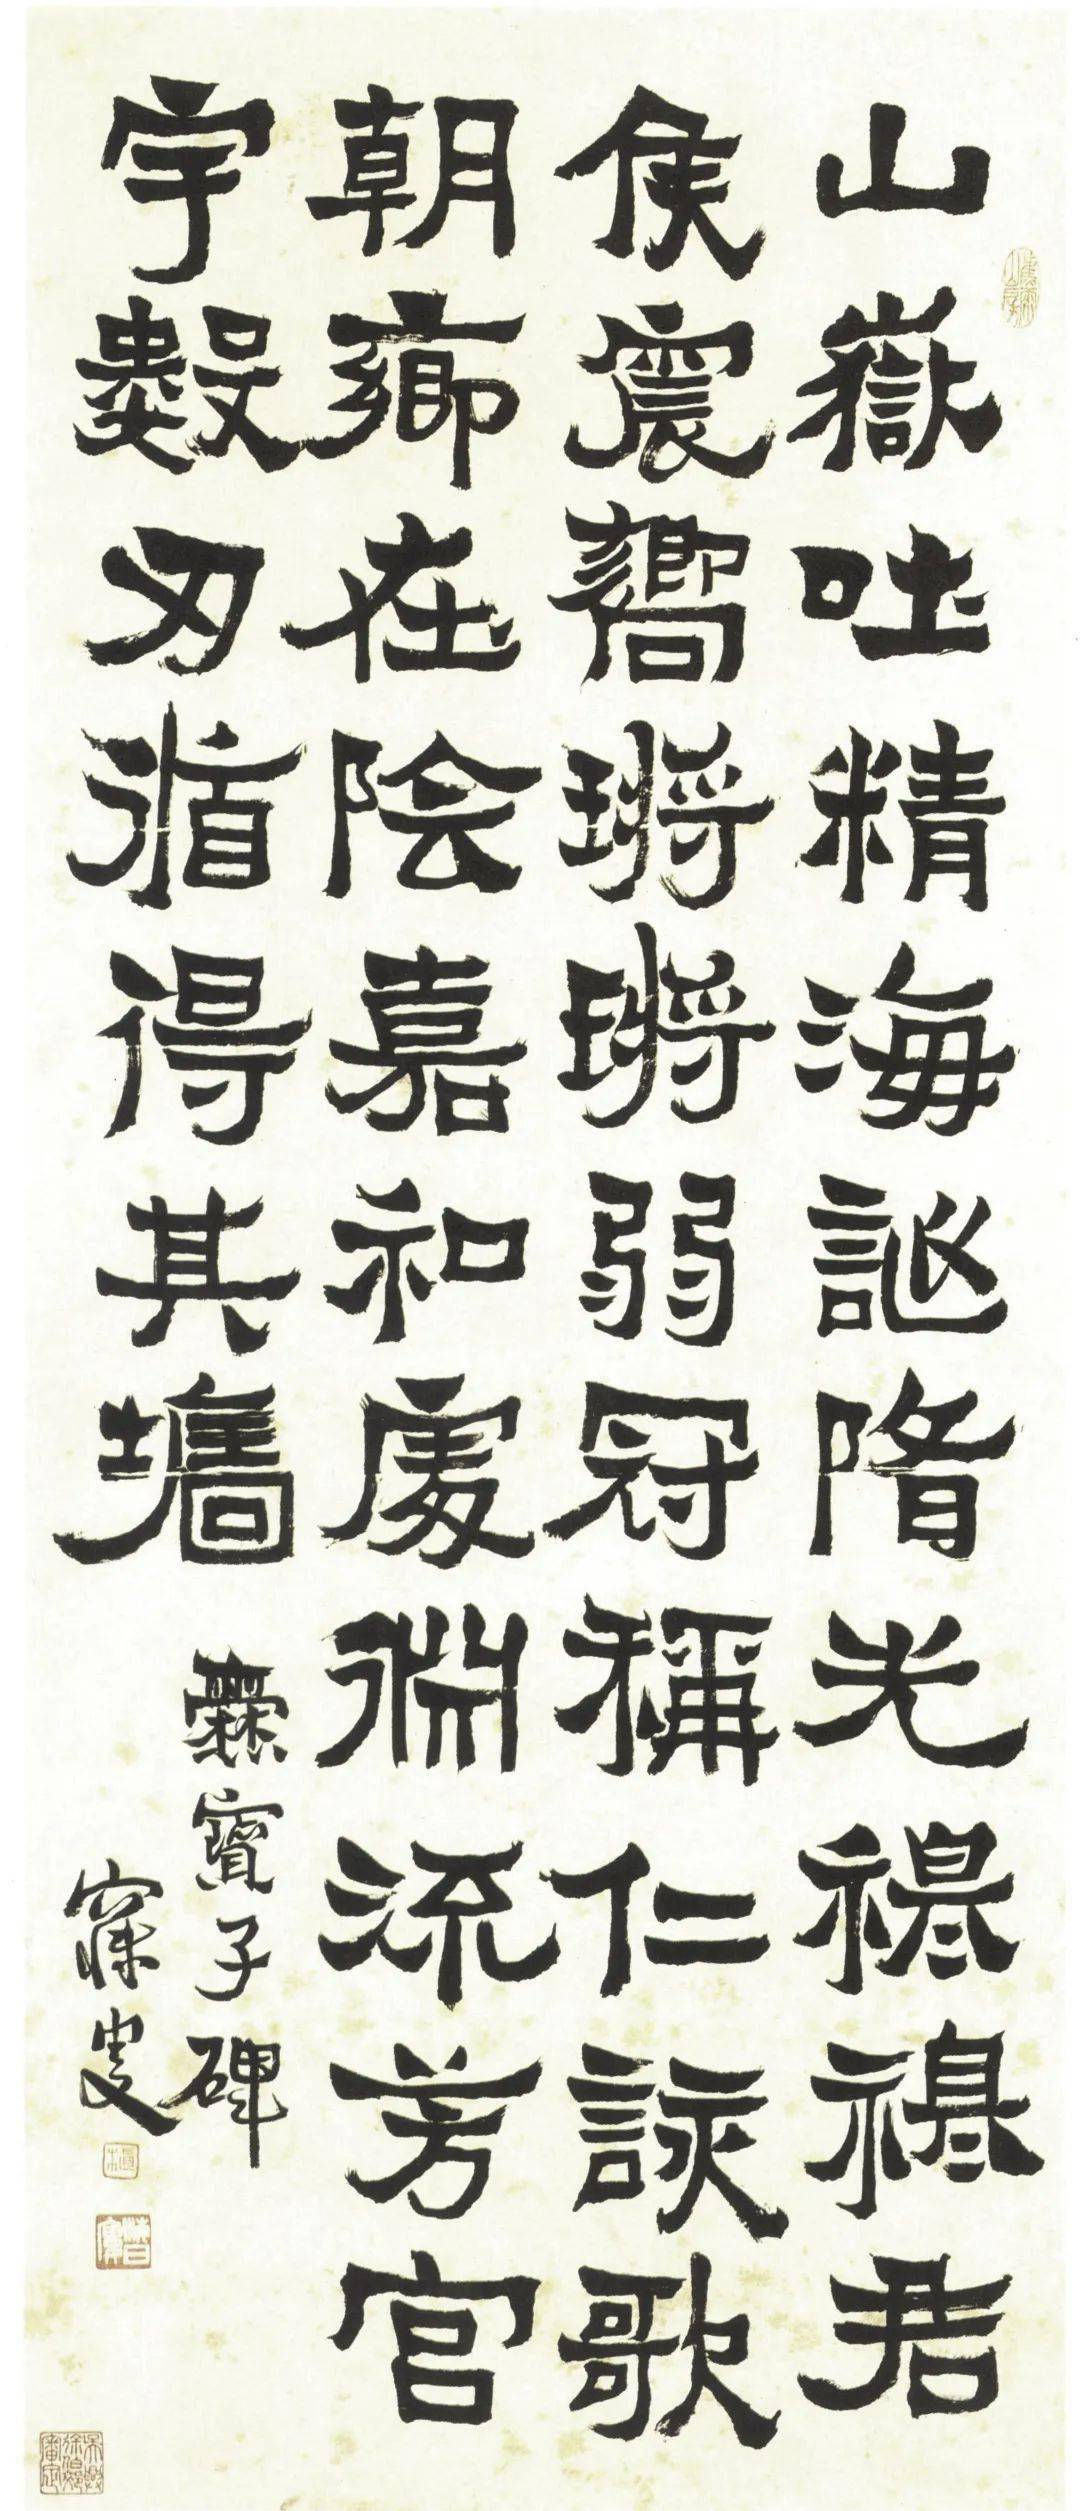 山嶽吐精海誕陼光穆穆君
侯震響鏘鏘弱冠稱仁詠歌
朝鄉在陰嘉和處淵流芳官
宇數刃循得其墻
爨寶子碑
寐叟